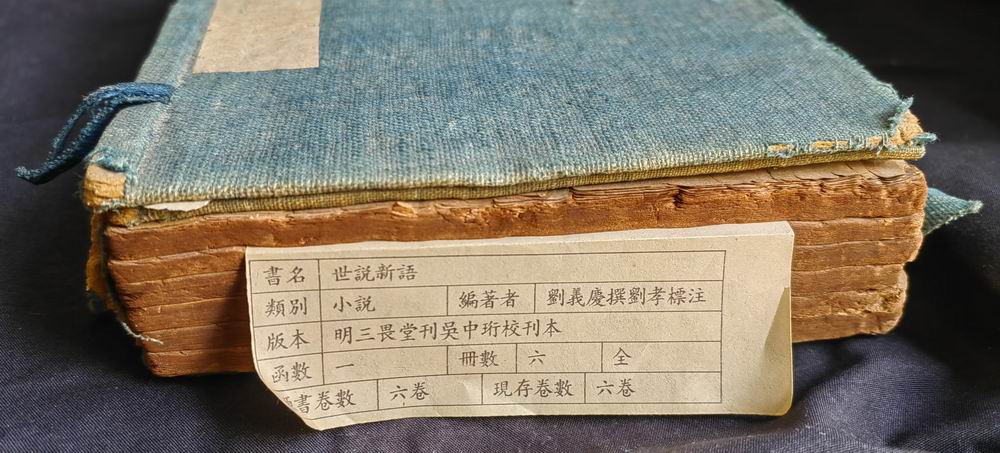 書名 世説新語
類別 小説 編著者 劉義慶撰劉孝標注
版本 明三畏堂刊吳中珩校刊本
函數 一 冊數 六 全
書卷數 六卷 現存卷數 六卷